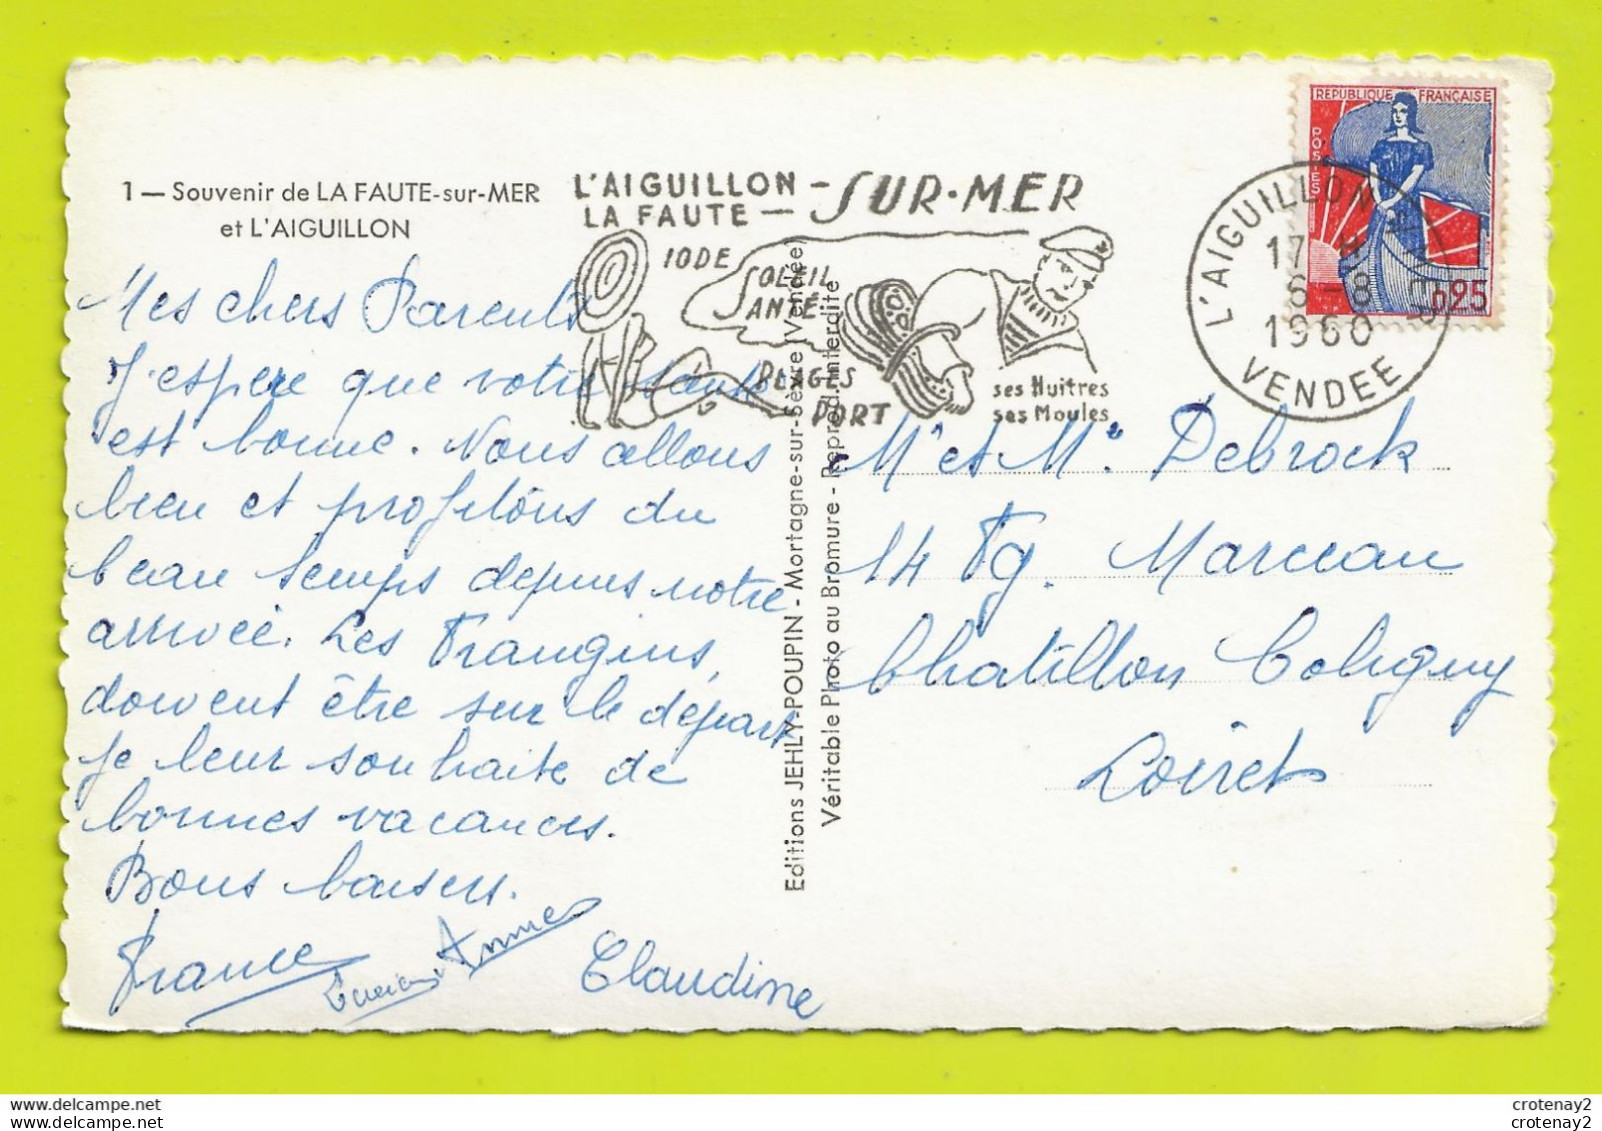 1 — Souvenir de LA FAUTE-sur-MER
et L'AIGUILLON
L'AIGUILLON -
LA FAUTE —
SUR-MER
IODE
SOLEIL
SANTÉ
PLAGES
PORT
ses Huitres
ses Moules
REPUBLIQUE FRANÇAISE
POSTES
0,25
L'AIGUILLON
17 H
6-8
1960
VENDEE
Mes chers Parents
J'espère que votre santé
est bonne. Nous allons
bien et profitons du
beau temps depuis notre
arrivée. Les Frangins,
doivent être sur le départ
je leur souhaite de
bonnes vacances.
Bons baisers.
France
Anne
Claudine
Editions JEHLY-POUPIN - Mortagne-sur-Sèvre (Vendée)
Véritable Photo au Bromure - Reprod. interdite
Mr et Me Debrock
14 Fg. Marceau
Chatillon Coligny
Loiret
crotenay2
crotenay2
crotenay2
crotenay2